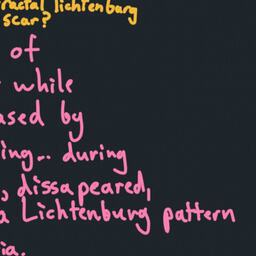 fractal lichtenburg
scar?
of
while
ased by
ing.. during
, dissapeared,
a Lichtenburg pattern
ia.